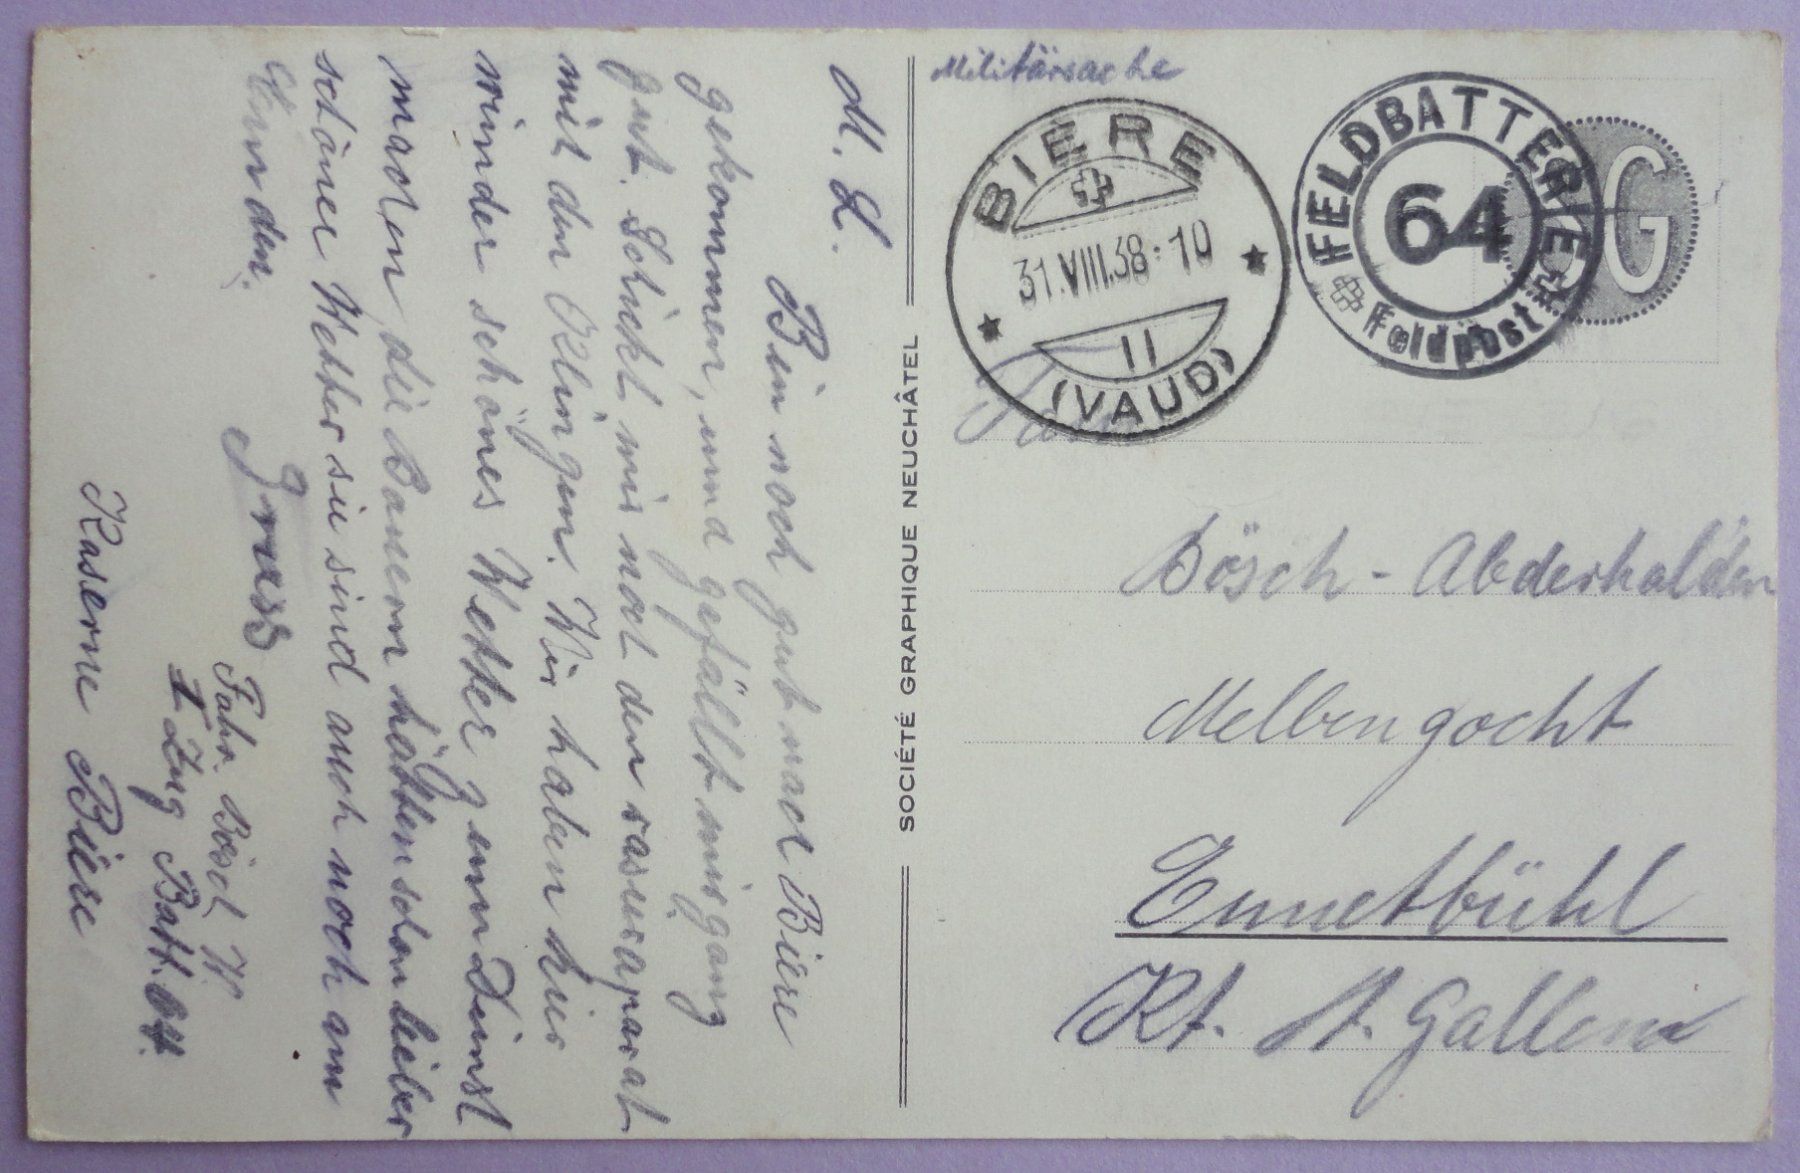 M. L.
Bin noch gut nach Biere
gekommen, und gefällt mir ganz
gut. Schickt mir noch den rasierapparat
mit den Klingen. Wir haben hier
wieder schönes Wetter zum Dienst
machen, die Bauern hätten schon lieber
schöner Wetter sie sind auch noch am
Emden.
Gruss
Fahr. Bösch W.
I Zug Batt. 64.
Kaserne Bière
SOCIÉTÉ GRAPHIQUE NEUCHÂTEL
Militärsache
BIÈRE
31.VIII.38-10
11
(VAUD)
FELDBATTERIE
64
Feldpost
G
Fam.
Bösch - Abderhalden
Ennetbühl
Kt. St. Gallen